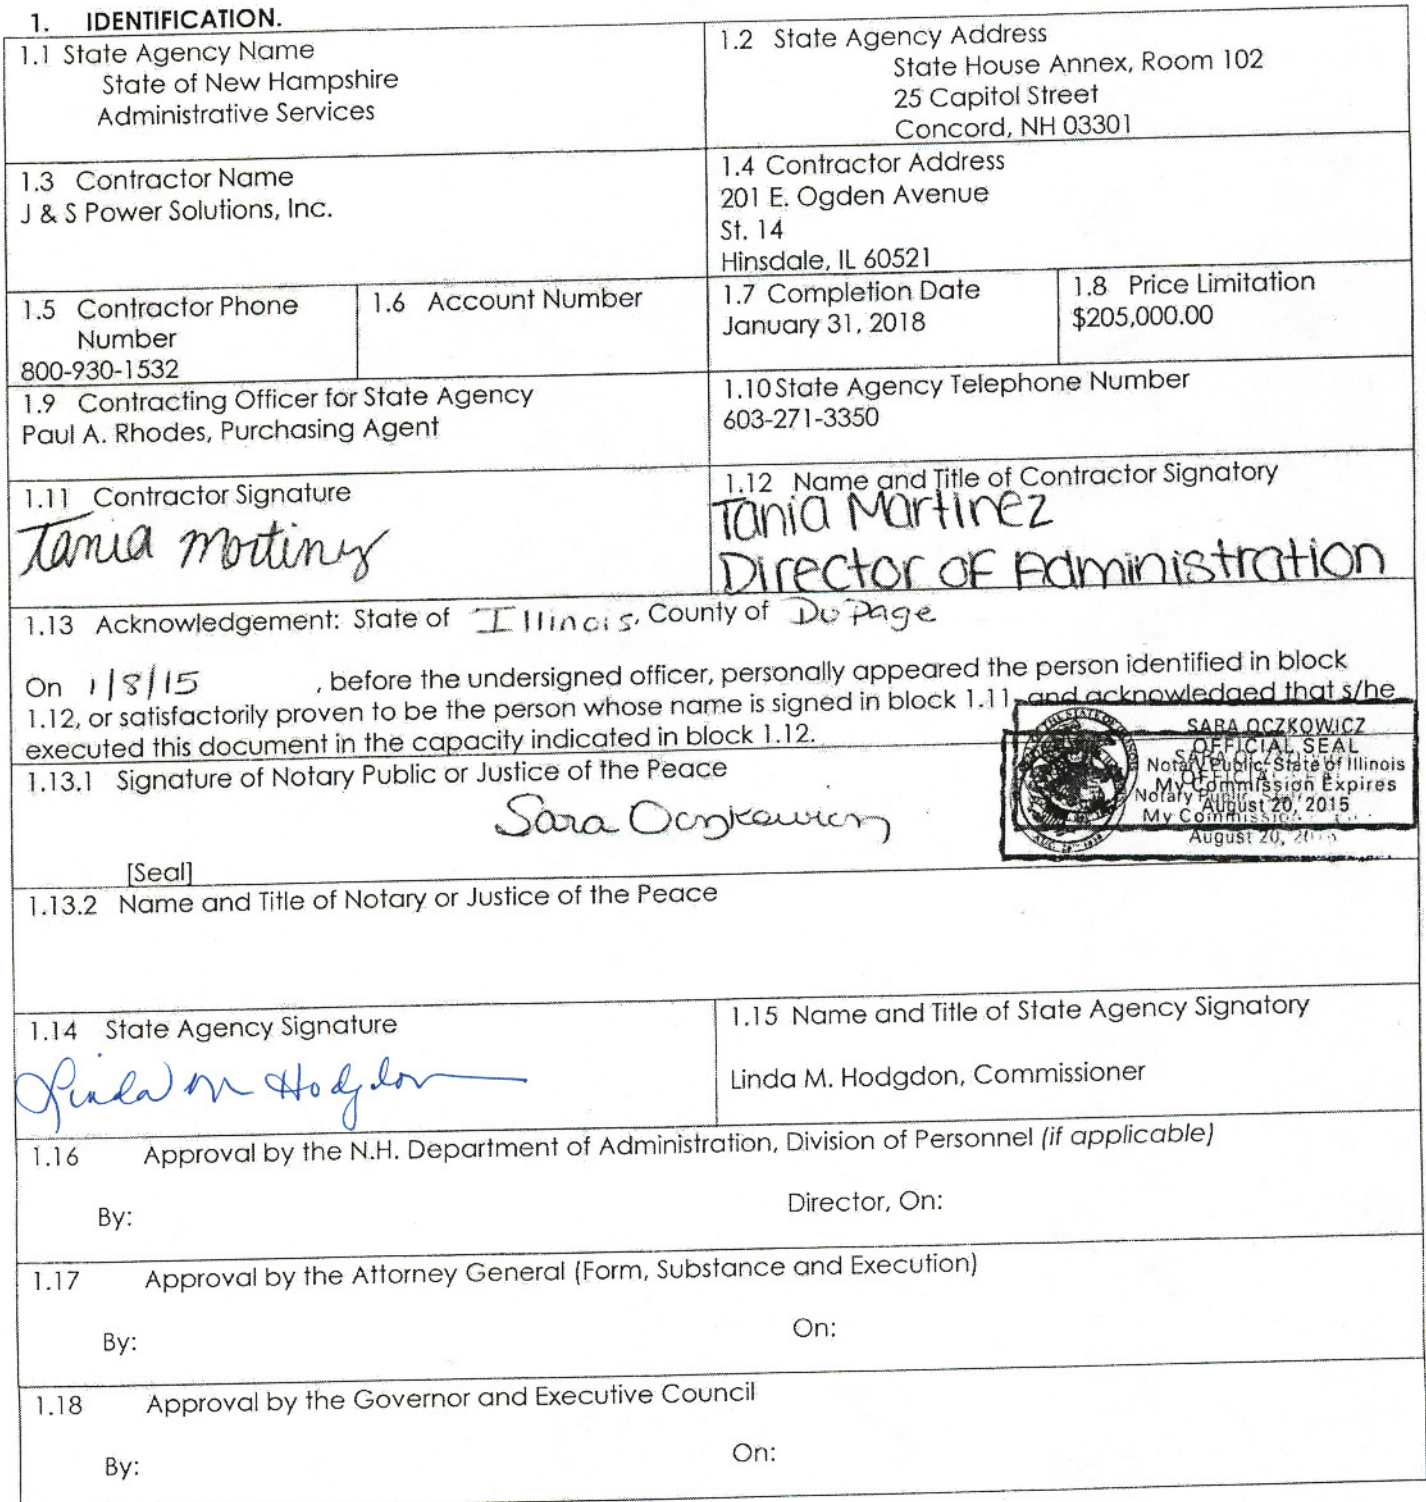 1. IDENTIFICATION.
1.1 State Agency Name
State of New Hampshire
Administrative Services
1.2 State Agency Address
State House Annex, Room 102
25 Capitol Street
Concord, NH 03301
1.3 Contractor Name
J & S Power Solutions, Inc.
1.4 Contractor Address
201 E. Ogden Avenue
St. 14
Hinsdale, IL 60521
1.5 Contractor Phone
Number
800-930-1532
1.6 Account Number
1.7 Completion Date
January 31, 2018
1.8 Price Limitation
$205,000.00
1.9 Contracting Officer for State Agency
Paul A. Rhodes, Purchasing Agent
1.10 State Agency Telephone Number
603-271-3350
1.11 Contractor Signature
Tania Martinez
1.12 Name and Title of Contractor Signatory
Tania Martinez
Director of Administration
1.13 Acknowledgement: State of Illinois, County of DuPage
On 1/8/15 , before the undersigned officer, personally appeared the person identified in block
1.12, or satisfactorily proven to be the person whose name is signed in block 1.11, and acknowledged that s/he
executed this document in the capacity indicated in block 1.12.
1.13.1 Signature of Notary Public or Justice of the Peace
Sara Oczkowicz
[Seal]
SARA OCZKOWICZ
OFFICIAL SEAL
Notary Public, State of Illinois
My Commission Expires
August 20, 2015
Notary Public
My Commission
August 20,
1.13.2 Name and Title of Notary or Justice of the Peace
1.14 State Agency Signature
Linda M Hodgdon
1.15 Name and Title of State Agency Signatory
Linda M. Hodgdon, Commissioner
1.16 Approval by the N.H. Department of Administration, Division of Personnel (if applicable)
By:
Director, On:
1.17 Approval by the Attorney General (Form, Substance and Execution)
By:
On:
1.18 Approval by the Governor and Executive Council
By:
On: